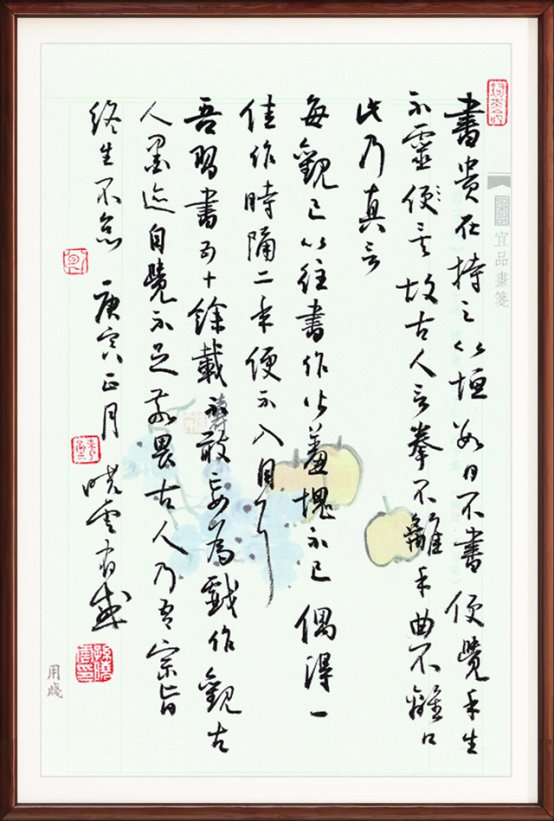 書贵在持之以恒数日不書便覺手生
不靈便之故古人云拳不離手曲不離口
此乃真言
每觀己以往書作皆羞愧不已偶得一
佳作時隔二年便不入目了
吾習書至十餘載不敢妄為戲作觀古
人墨迹自覺不足敬畏古人乃吾宗旨
終生不怠 庚寅正月 曉雲有感
宜品畫箋
用牋